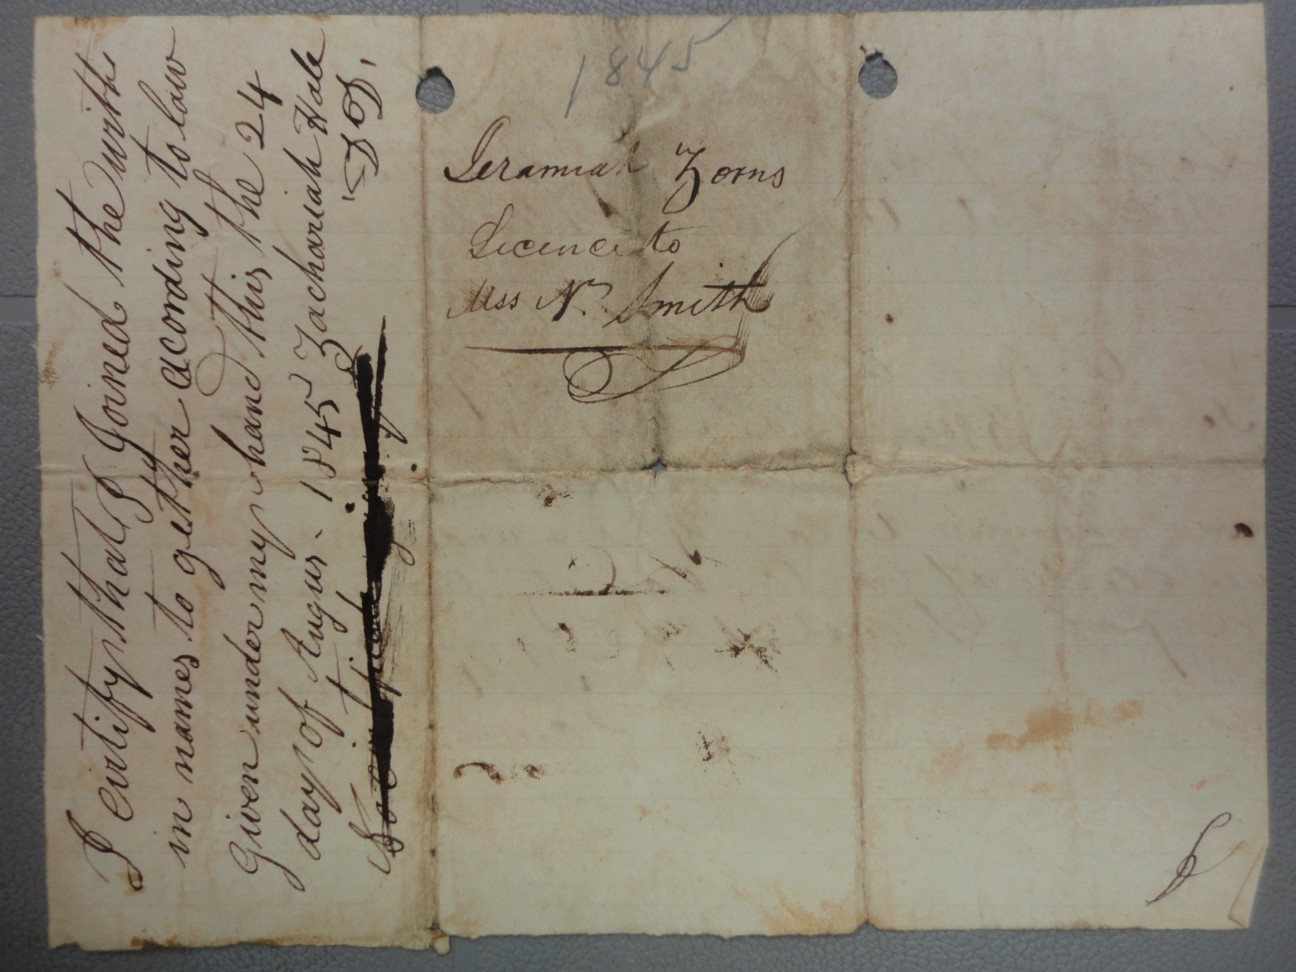 I certify that I Joined the with
in names to gether according to law
Given under my hand this the 24
day of Augus. 1845 Zachariah Hale
1845
Jeramiah Zorns
Licence to
Mss N. Smith